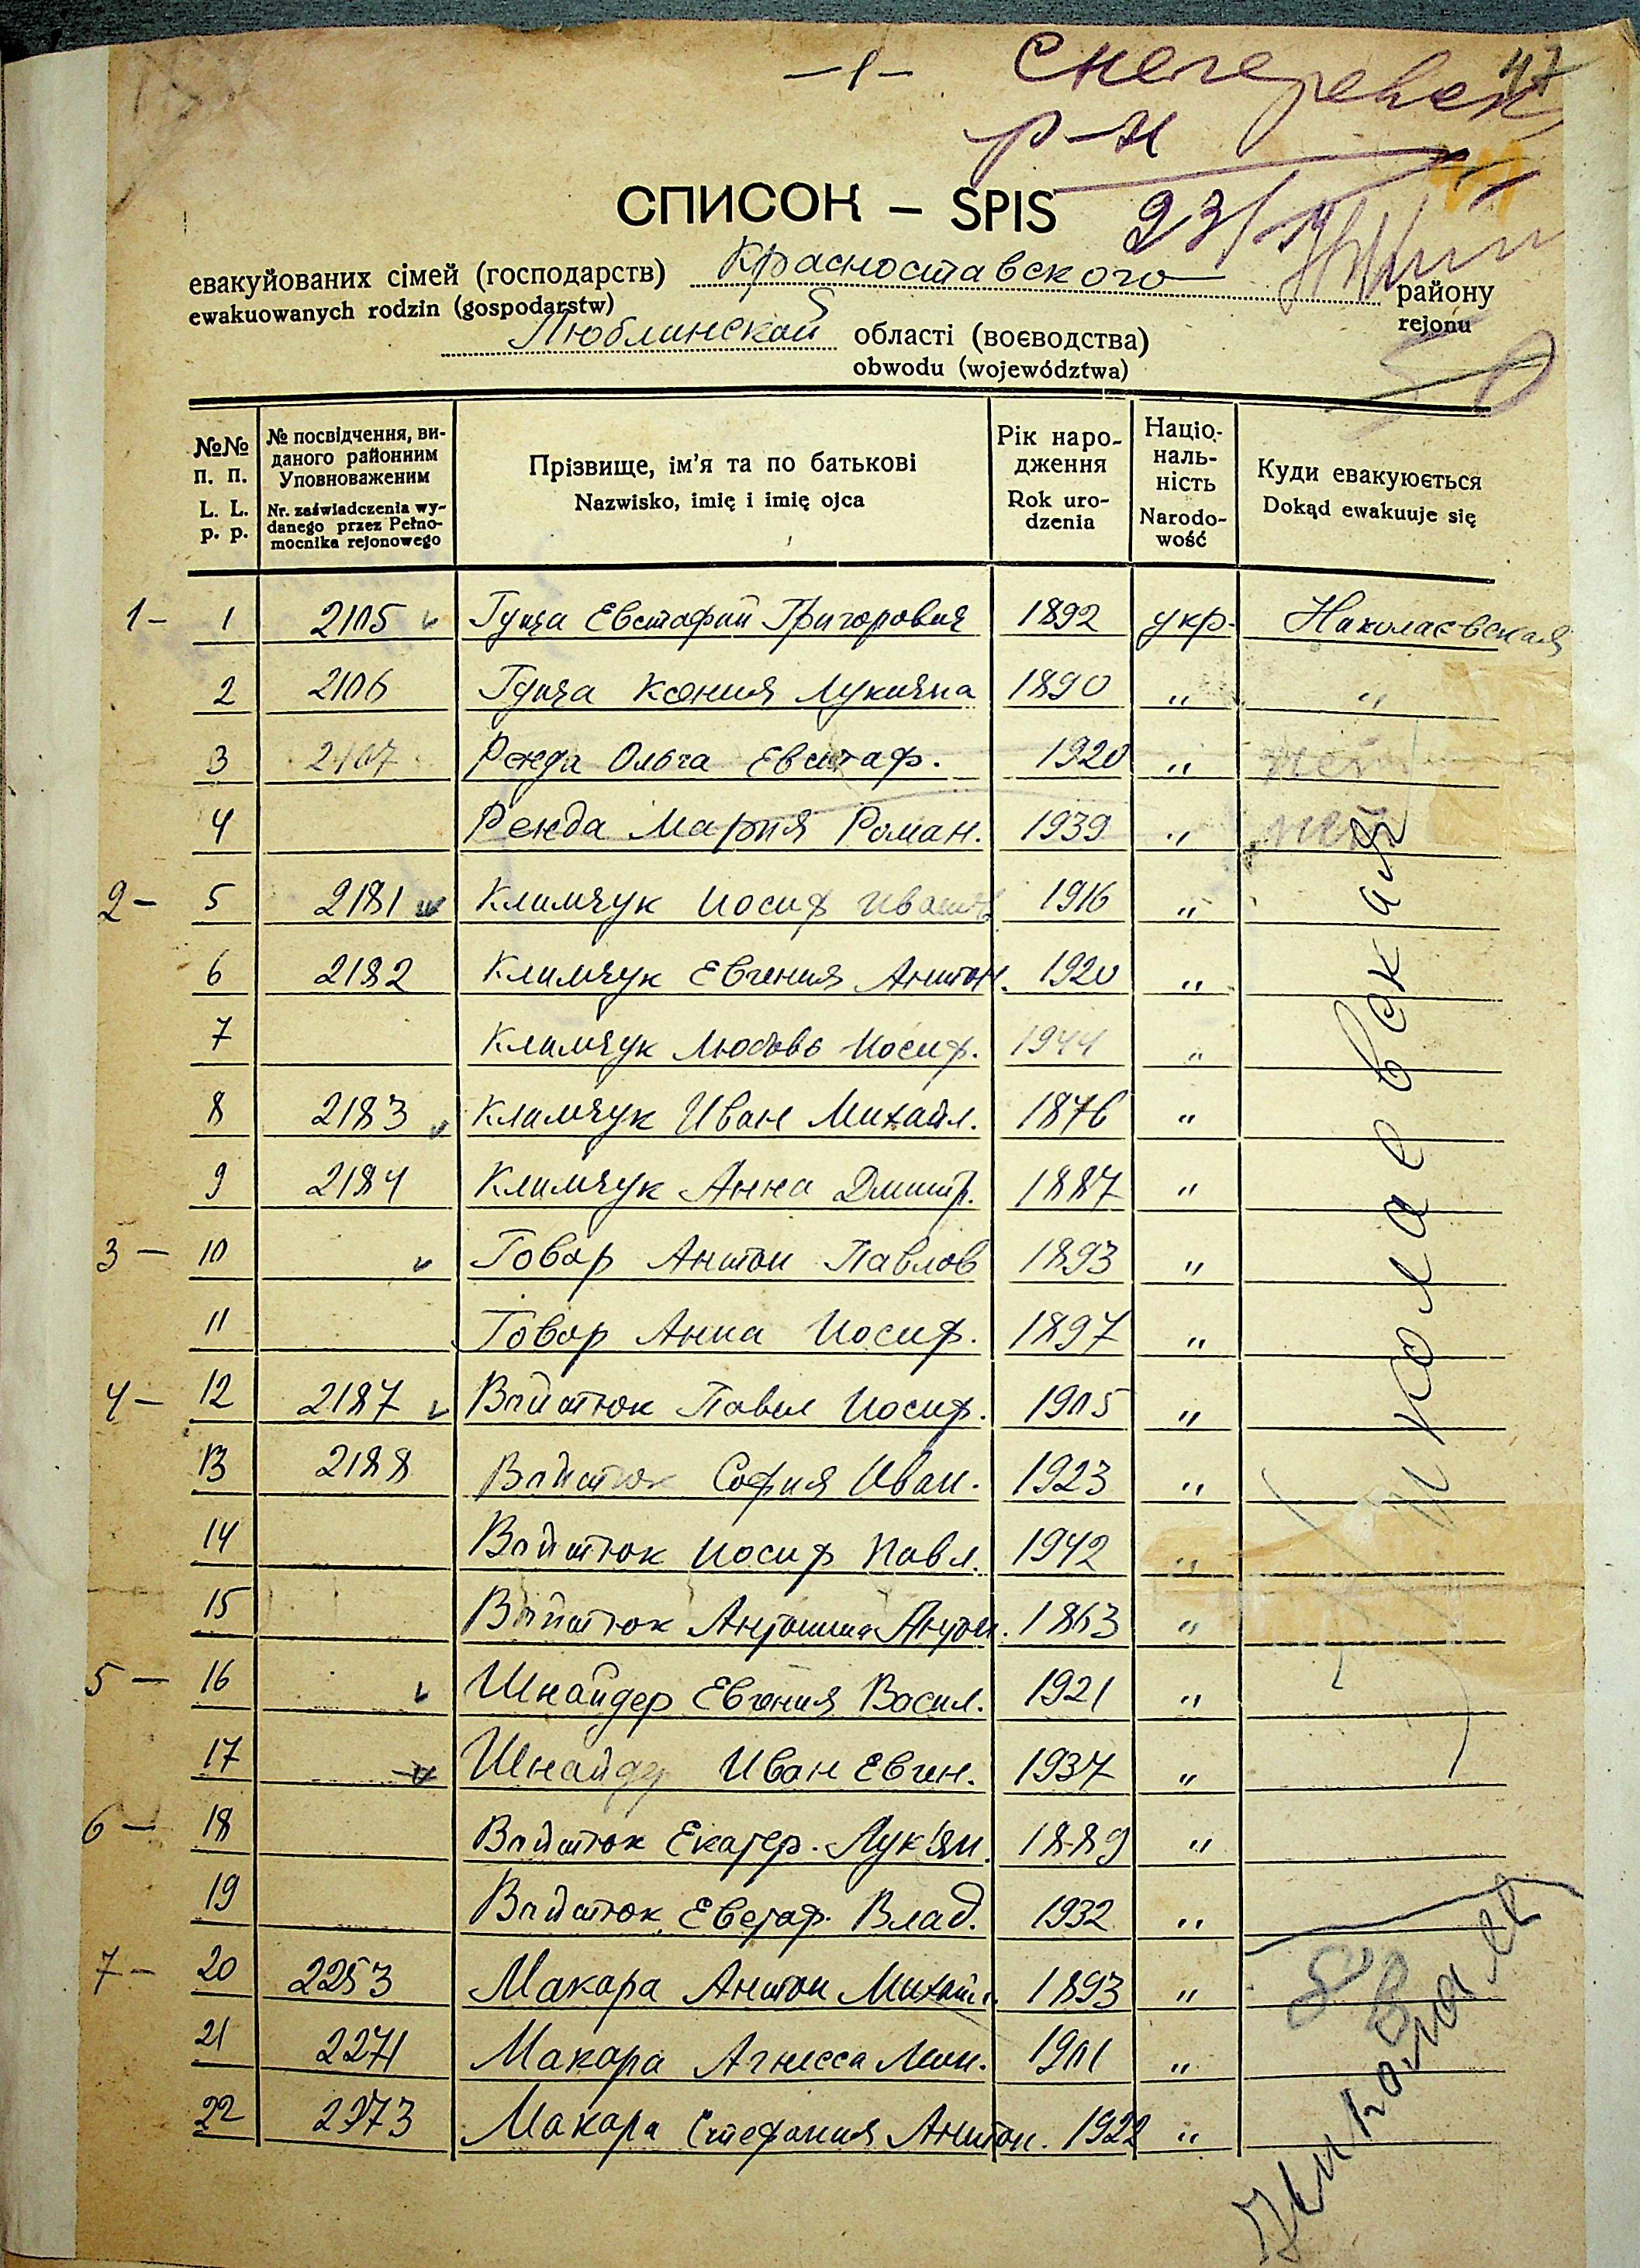 — 1 —
47
Снегеревск
р-н
СПИСОК – SPIS
23/
евакуйованих сімей (господарств) Красноставского району
ewakuowanych rodzin (gospodarstw) rejonu
Люблинской області (воєводства)
obwodu (województwa)
№№ п. п. L. L. p. p.
№ посвідчення, виданого районним Уповноваженим Nr. zaświadczenia wydanego przez Pełnomocnika rejonowego
Прізвище, ім'я та по батькові Nazwisko, imię i imię ojca
Рік народження Rok urodzenia
Національність Narodowość
Куди евакуюється Dokąd ewakuuje się
1– 1 2105 Гуща Евстафий Григорович 1892 укр. Николаевская
2 2106 Гуща Ксения Лукична 1890 „ „
3 2107 Ренда Ольга Евстаф. 1920 „ нет
4 Ренда Мария Роман. 1939 „ нет
2– 5 2181 Климчук Иосиф Иванов 1916 „
6 2182 Климчук Евгения Антон. 1920 „
7 Климчук Любовь Иосиф. 1944 „
8 2183 Климчук Иван Михайл. 1876 „
9 2184 Климчук Анна Дмитр. 1887 „
3– 10 Говор Антон Павлов 1893 „
11 Говор Анна Иосиф. 1897 „
4– 12 2187 Войтюк Павел Иосиф. 1905 „
13 2188 Войтюк София Иван. 1923 „
14 Войтюк Иосиф Павл. 1942 „
15 Войтюк Антонина Антон. 1863 „
5– 16 Шнайдер Евгения Васил. 1921 „
17 Шнайдер Иван Евген. 1937 „
6– 18 Войтюк Екатер. Лук'ян. 1889 „
19 Войтюк Евстаф. Влад. 1932 „
7– 20 2253 Макара Антон Михайл. 1893 „
21 2271 Макара Агнесса 1901 „
22 2273 Макара Стефания Антон. 1922 „
Николаевская
Николаев